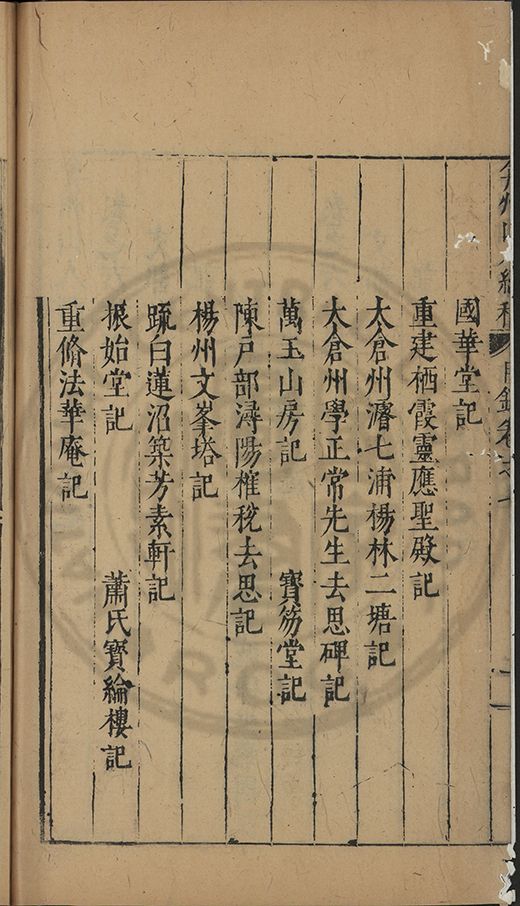 國華堂記
重建栖霞靈應聖殿記
太倉州濬七浦楊林二塘記
太倉州學正常先生去思碑記
萬玉山房記 寶笏堂記
陳戶部潯陽榷稅去思記
楊州文峯塔記
疏白蓮沼築芳素軒記
振始堂記 蕭氏寶綸樓記
重脩法華庵記